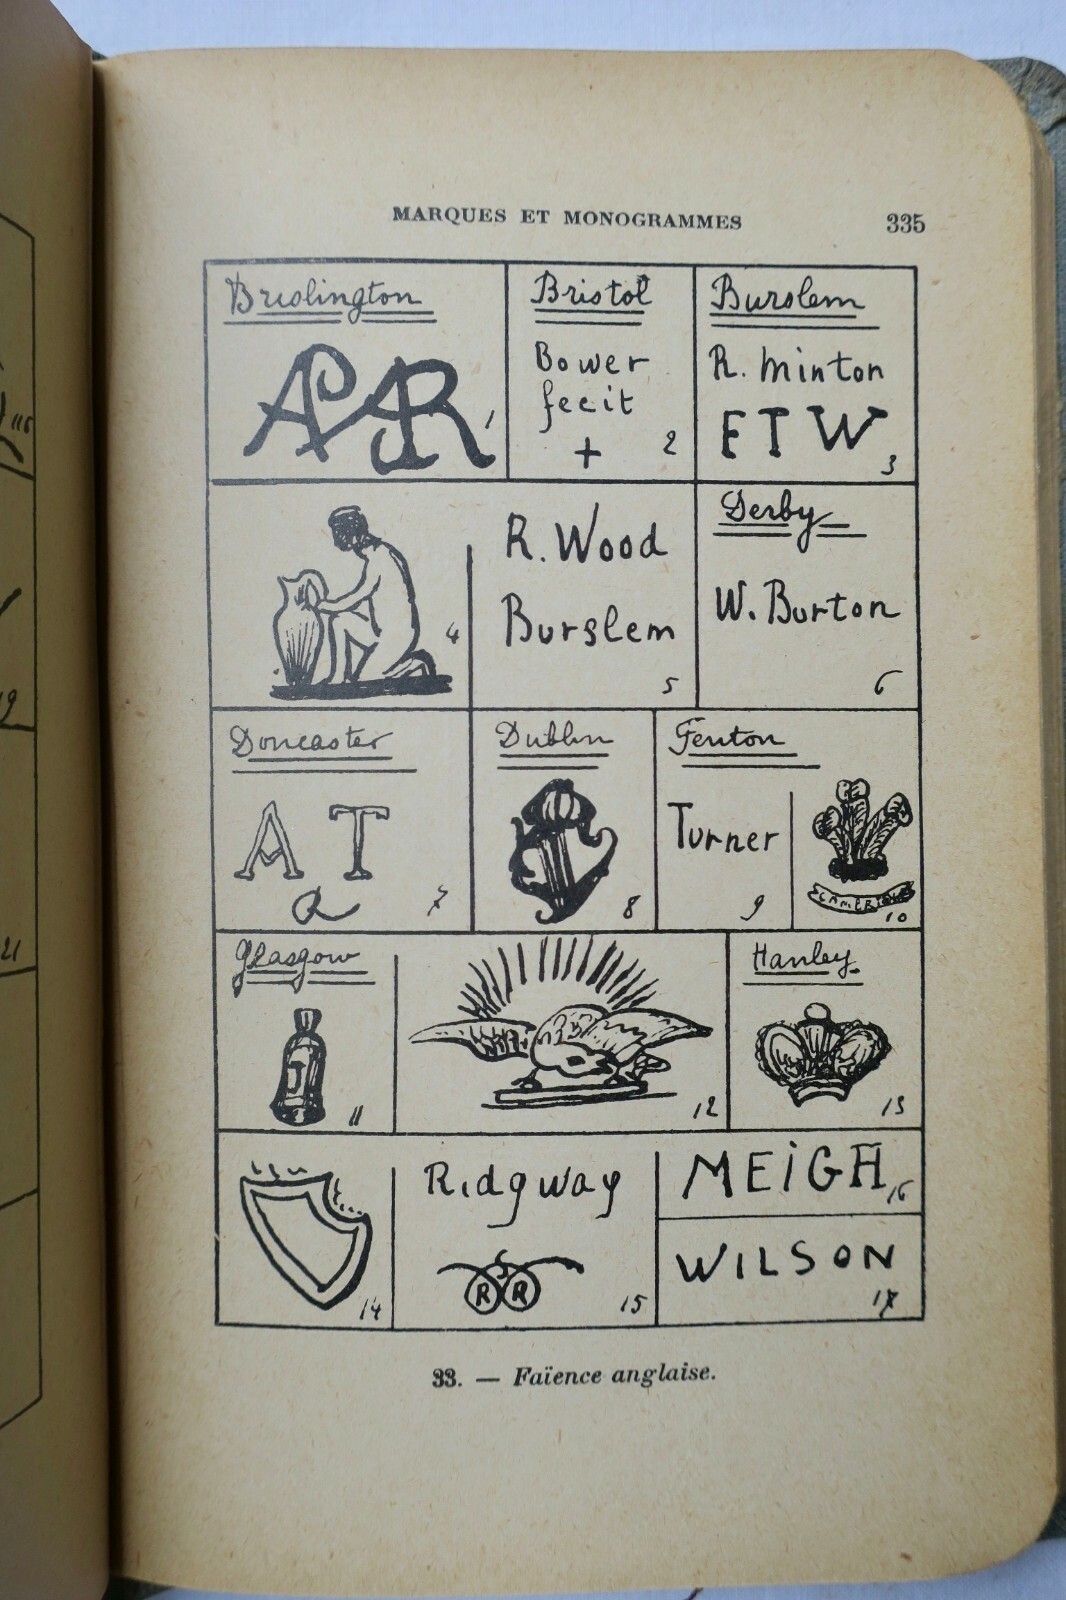 MARQUES ET MONOGRAMMES 335
Brislington
APR 1
Bristol
Bower
fecit
+ 2
Burslem
R. Minton
E T W 3
4
R. Wood
Burslem
5
Derby
W. Burton
6
Doncaster
A T
R 7
Dublin
8
Fenton
Turner
9
10
Glasgow
11
12
Hanley
13
14
Ridgway
J
R R 15
MEIGH 16
WILSON
17
33. — Faïence anglaise.
116
19
21